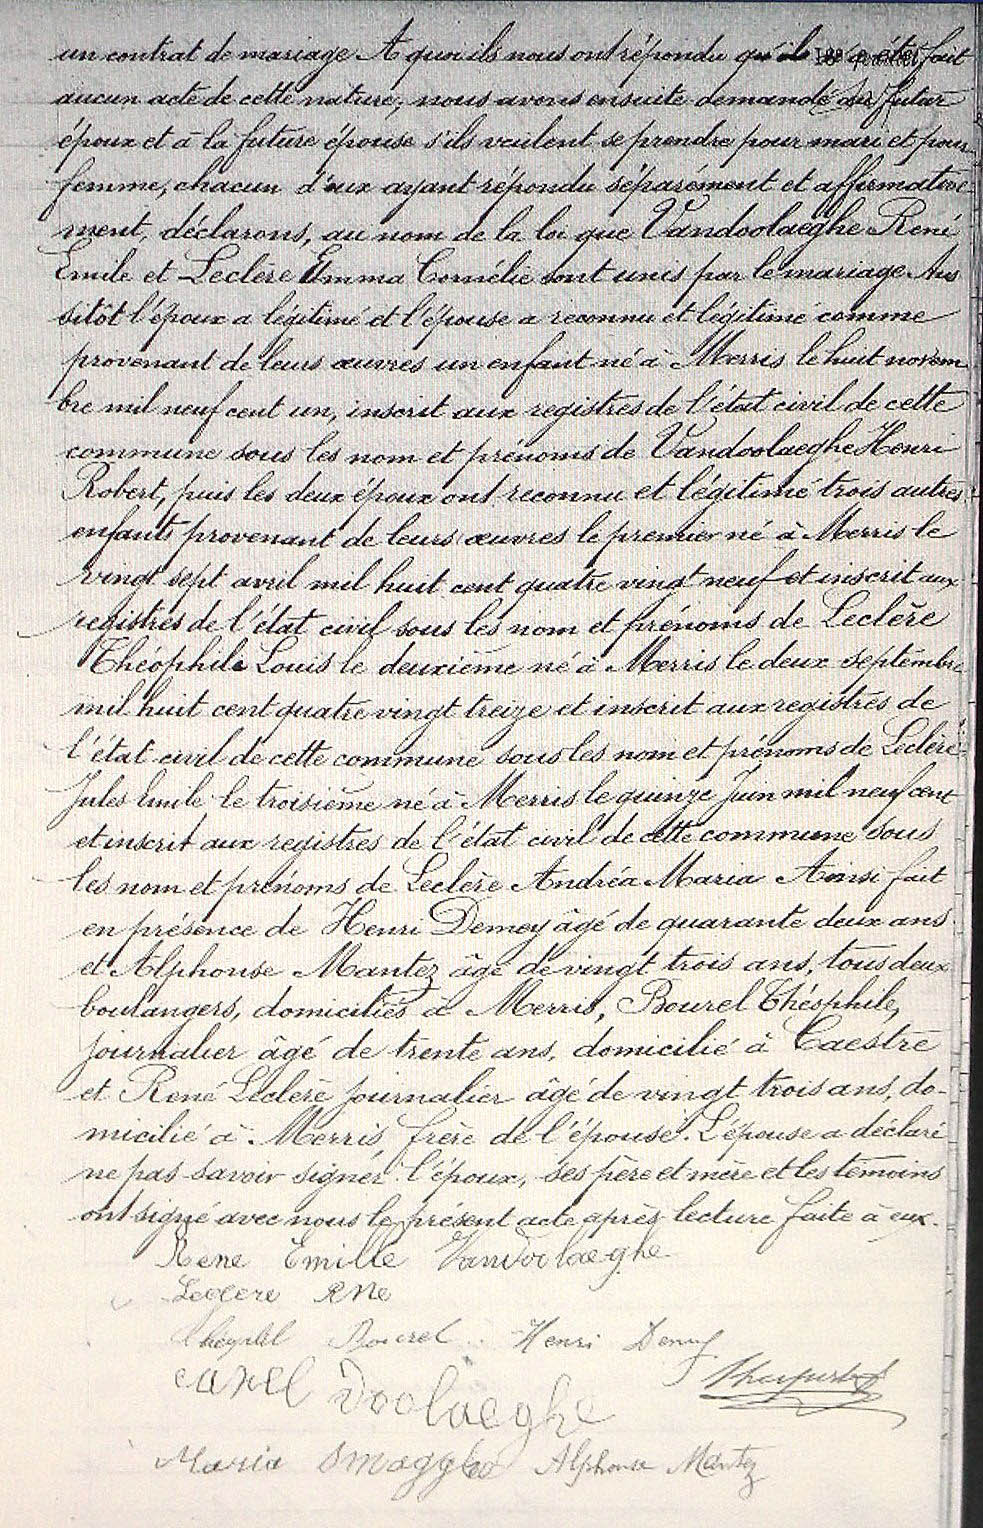 un contrat de mariage A quoi ils nous ont répondu qu'il été fait
aucun acte de cette nature, nous avons ensuite demandé au futur
époux et à la future épouse s'ils veulent se prendre pour mari et pour
femme, chacun d'eux ayant répondu séparément et affirmative-
ment, déclarons, au nom de la loi que Vandoolaeghe René
Emile et Leclère Emma Cornélie sont unis par le mariage. Aus
sitôt l'époux a légitimé et l'épouse a reconnu et légitimé comme
provenant de leurs œuvres un enfant né à Merris le huit novem
bre mil neuf cent un, inscrit aux registres de l'état civil de cette
commune sous les nom et prénoms de Vandoolaeghe Henri
Robert, puis les deux époux ont reconnu et légitimé trois autres
enfants provenant de leurs œuvres le premier né à Merris le
vingt sept avril mil huit cent quatre vingt neuf et inscrit aux
registres de l'état civil sous les nom et prénoms de Leclère
Théophile Louis le deuxième né à Merris le deux septembre
mil huit cent quatre vingt treize et inscrit aux registres de
l'état civil de cette commune sous les nom et prénoms de Leclère
Jules Emile le troisième né à Merris le quinze Juin mil neuf cent
et inscrit aux registres de l'état civil de cette commune sous
les nom et prénoms de Leclère Andréa Maria Ainsi fait
en présence de Henri Demey âgé de quarante deux ans
et Alphonse Mantez âgé de vingt trois ans, tous deux
boulangers, domiciliés à Merris, Bourel Théophile,
journalier âgé de trente ans, domicilié à Caestre
et René Leclère journalier âgé de vingt trois ans, do-
micilié à Merris, frère de l'épouse. L'épouse a déclaré
ne pas savoir signer l'époux, ses père et mère et les témoins
ont signé avec nous le présent acte après lecture faite à eux.
Rene Emille Vandoolaeghe
Leclere Rne
Bourel Henri Demey
Doolaeghe
Maria Smagghe Alphonse Mantez